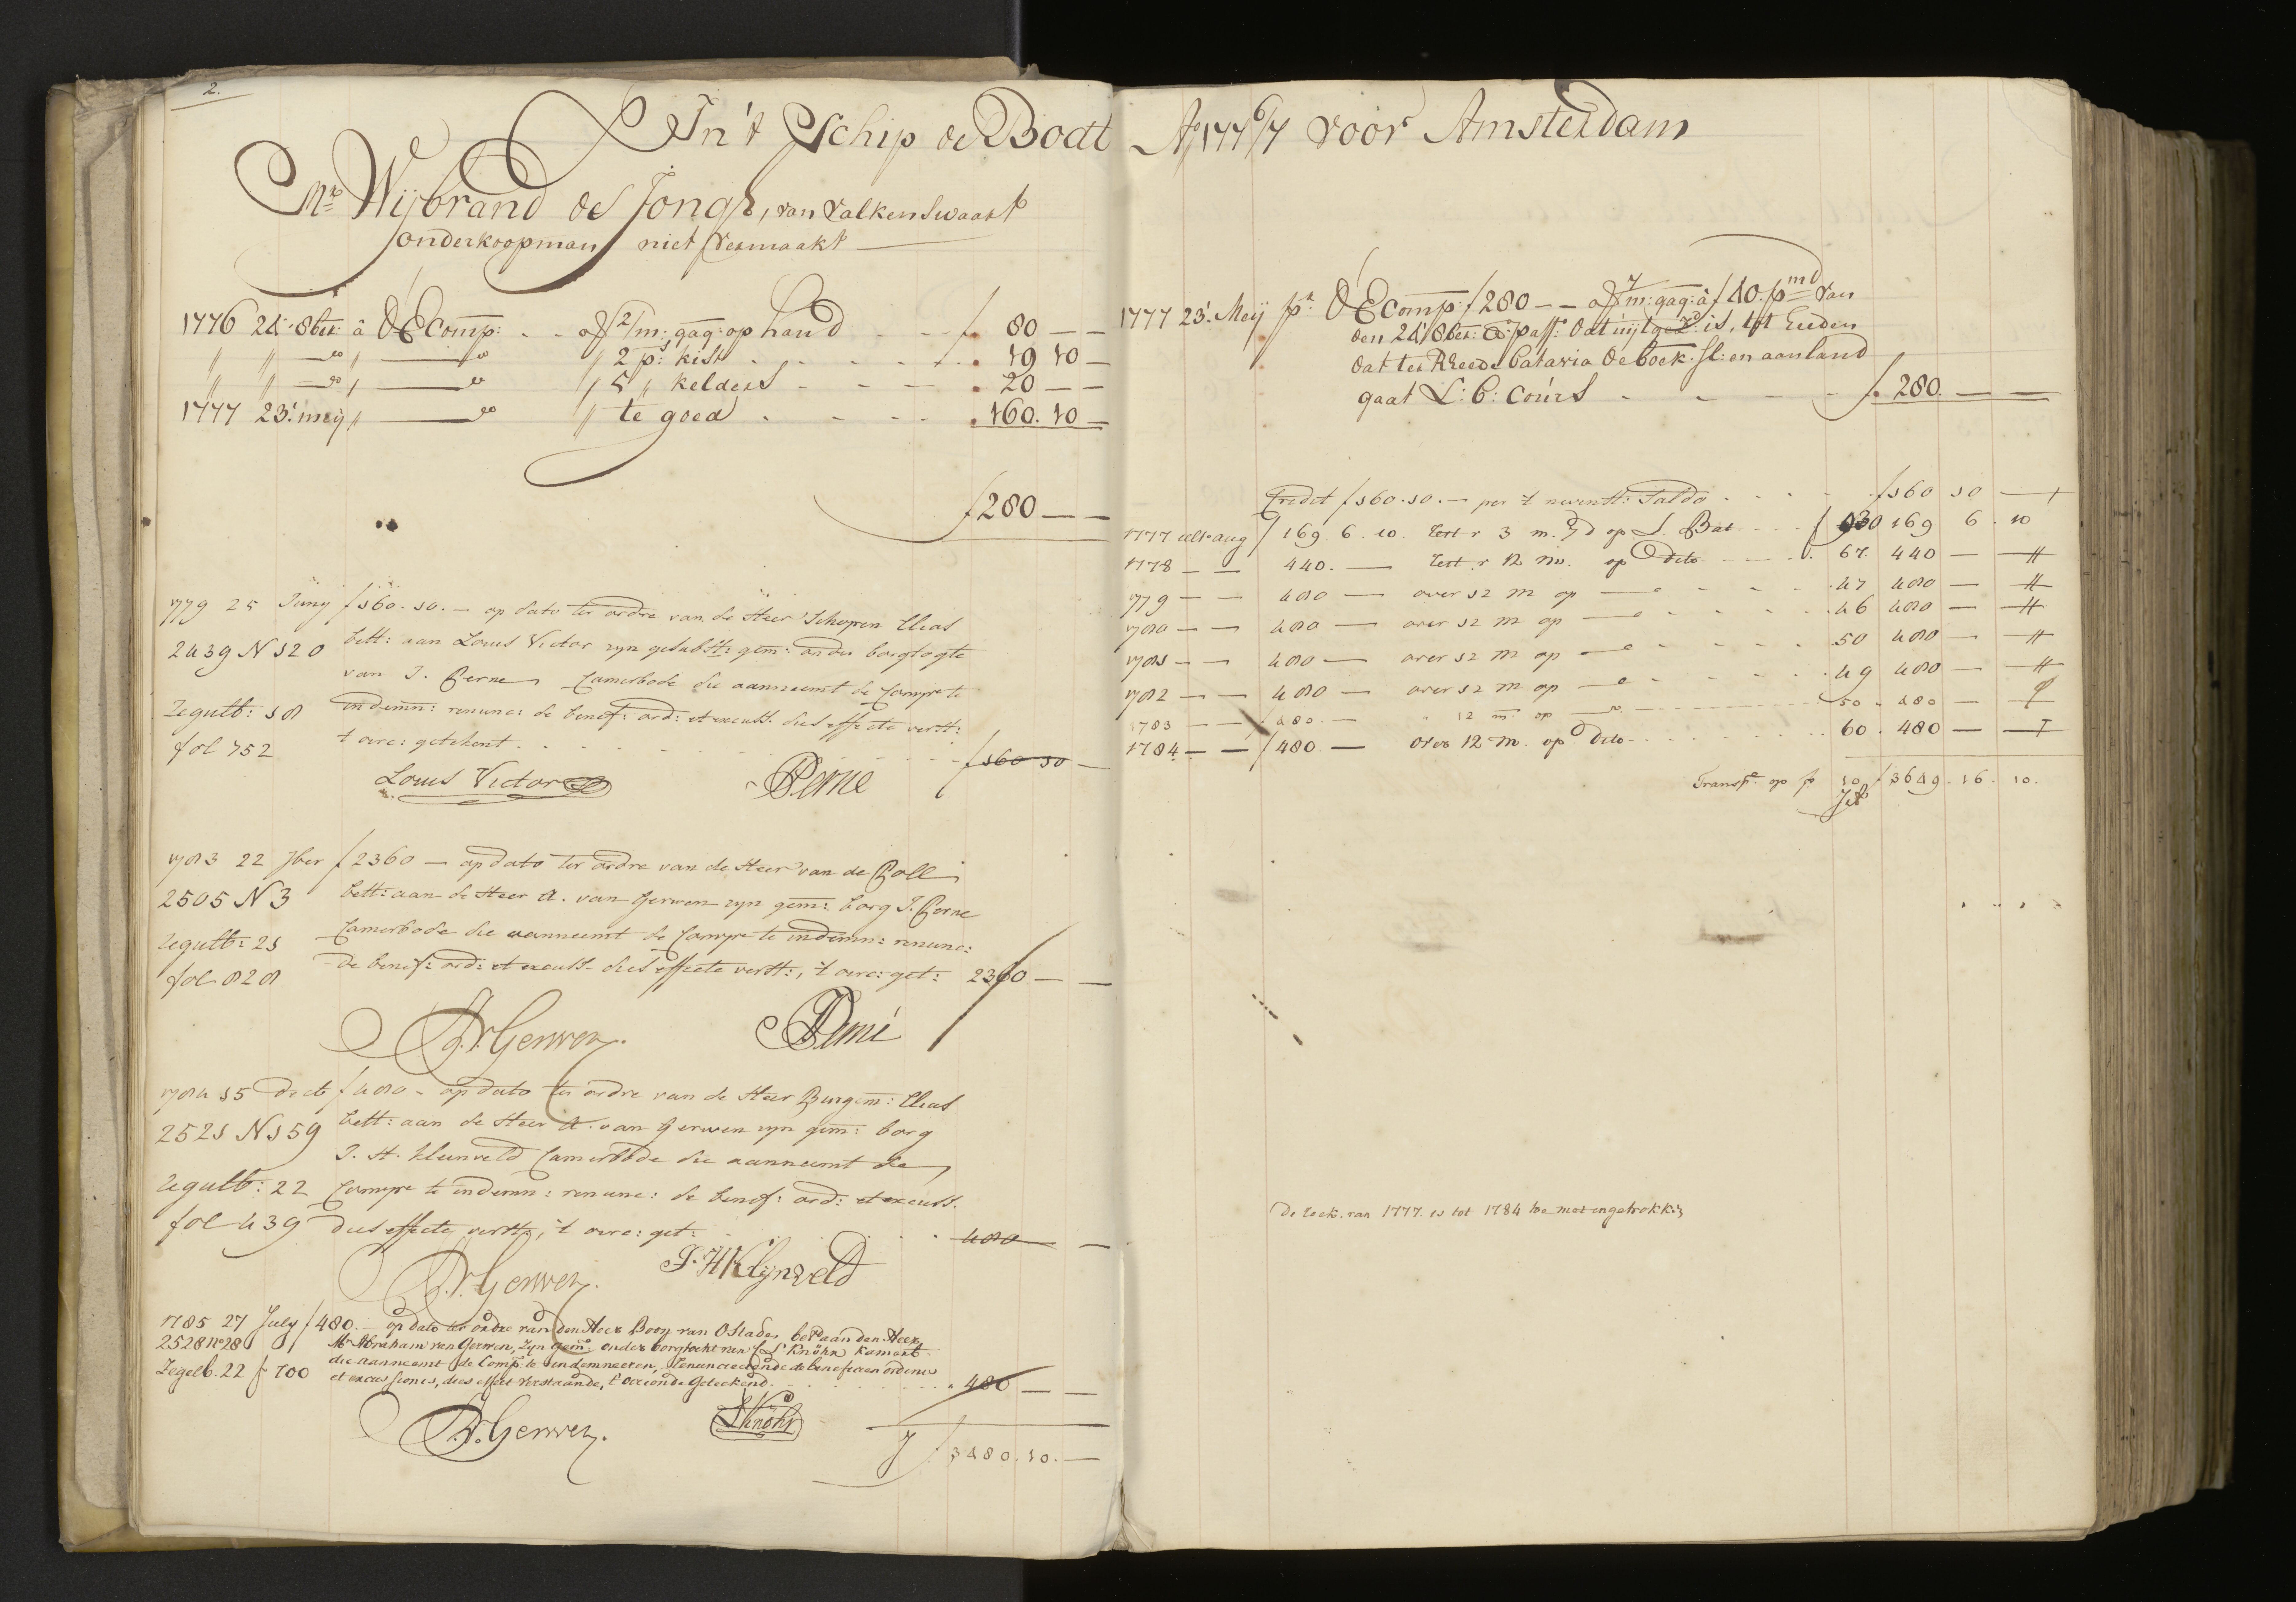 2.
In't Schip de Bodt
Mr. Wijbrand de Jongh, van Valkenswaart
onderkoopman niet vermaakt
1776 24' 8ber: â d'EComp: . . . of 2/m: gag: op hand . . . f. 80 — —
" " — do " — do " 2 p:s kist . . . . . . . 19 10 —
" " — do " — do " 5 " kelders . . . . 20 — —
1777 23' meij " — do " te goed . . . . . 160. 10 —
f 280 — —
1779 25 Juny f 160. 10. — op dato ter ordre van de Heer Schepen Elias
2439 N 120 bett: aan Louis Victor zyn gesubstt: gem: onder borgtogte
van J. Perne Camerbode die aanneemt de Compe te
Zegultb: 18 indemn: renunc: de benef: ord: et excuss. dies effecte verstt:
fol 752 't oirc: getekent . . . . . . . f 160 10 —
Louis Victor JPerné
1783 22 7ber f 2360 — op dato ter ordre van de Heer van de Poll
2505 N 3 bett: aan de Heer A. van Gerwen zyn gem: borg J. Perne
Zegultb: 21 Camerbode die aanneemt de Compe te indemn: renunc:
fol 828 de benef: ord: et excuss. dies effecte verstt:, 't oirc: get: 2360 — —
A.V. Gerwen. JPerné
1784 15 Decb f 480 — op dato ter ordre van de Heer Burgem: Elias
2521 N 159 bett: aan de Heer A. van Gerwen zyn gem: borg
J. H. Kleinveld Camerbode die aanneemt de
Zegultb: 22 Compe te indemn: renunc: de benef: ord: et excuss.
fol 439 dies effecte verstt:, 't oirc: get: . . . . 480 —
A.V. Gerwen. J. H Klijnveld
1785 27 July f 480. — op dato ter ordre van den Heer Boon van Ostade, bet: aan den Heer
2528 No 28 Mr Abraham van Gerwen, Zyn gem: onder borgtocht van L Knöhr Kamerb:
die aanneemt de Comp: te indemneeren, renuncieerende de beneficien ordinis
Zegelb. 22 f 700 et excussionis, dies effect verstaande, t' oirconde Geteekend. . . . . 480 — —
A.V. Gerwen. LKnöhr
f 3480. 10. —
Ao 1776/7 voor Amsterdam
1777 23' Meij pr d'EComp: f 280 — — of 7/m: gag: â f 40. pmd van
den 24' 8ber: ao passo dat uijtgezt: is, tot heeden
dat ter Rheede Batavia de boek: sl: en aan land
gaat L: b: cours . . . . f. 280. — —
Credit f 160. 10. — per 't nevenst: Saldo . . . . f 160 10 —
1777 ult.o aug f 169. 6. 10. Cert r 3 m. Gd op L. Bat . . . f 30 169 6. 10
1778 — — 440. — Cert. r 12 m. op dito . . . 67. 440 — —
1779 — — 480 — over 12 m op — o . . . 47 480 — —
1780 — — 480 — over 12 m op — o . . . 46 480 — —
1781 — — 480 — over 12 m op — o . . . 50 480 — —
1782 — — 480 — over 12 m op — o . . . 49 480 — —
1783 — — 480. — 12 m. op — o . . . 50. 480 — —
1784 — — f 480. — over 12 m. op dito . . . 60. 480 — —
Transpt op f 10 f 3649. 16. 10.
De Reek. van 1777 is tot 1784 toe met ingetrokken